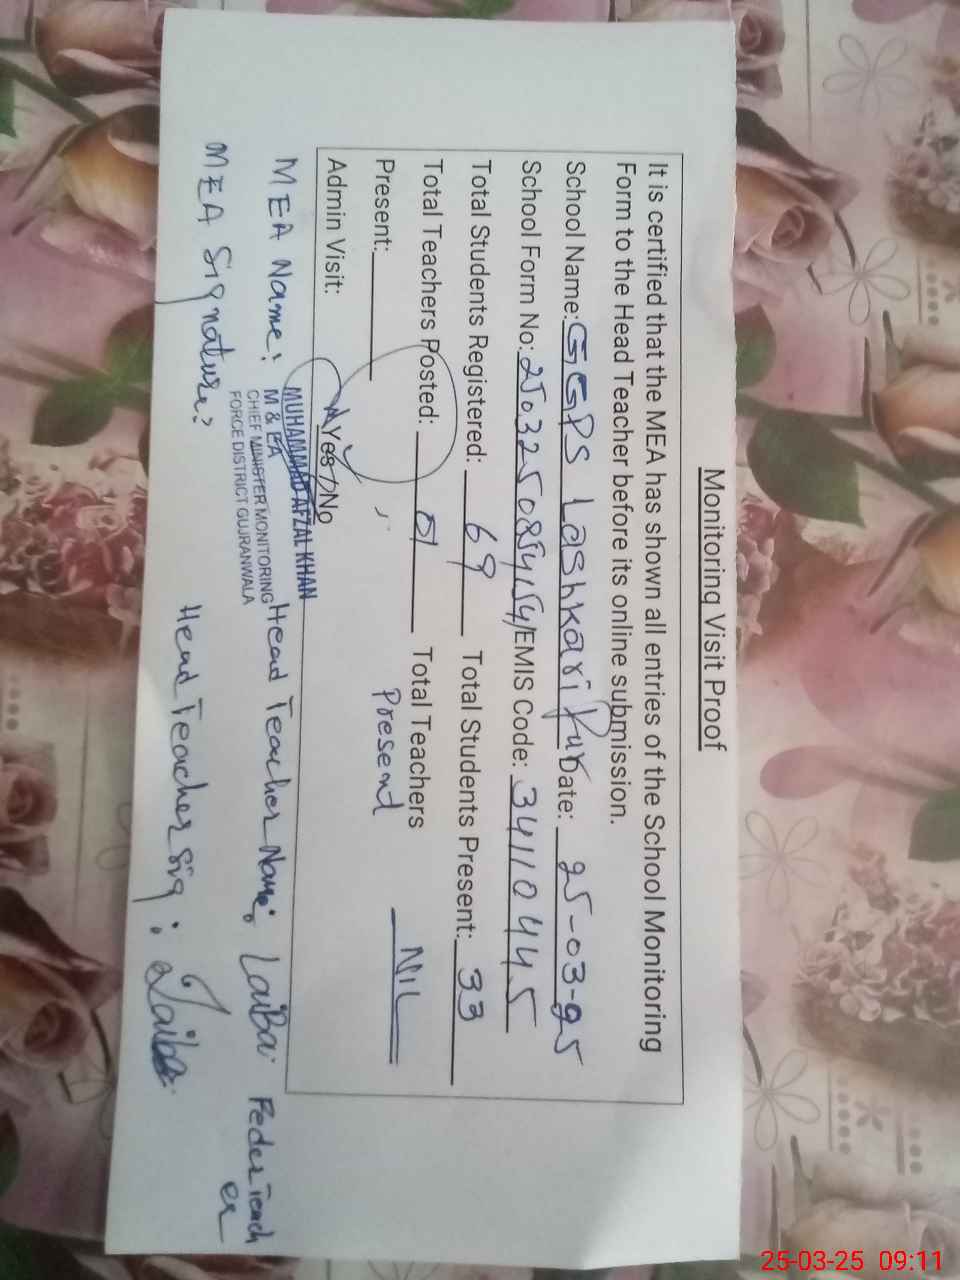 Monitoring Visit Proof
It is certified that the MEA has shown all entries of the School Monitoring
Form to the Head Teacher before its online submission.
School Name: GGPS Lashkari Pur Date: 25-03-25
School Form No: EMIS Code: 34110445
Total Students Registered: 69 Total Students Present: 33
Total Teachers Posted: 01 Total Teachers
Present: Present NIL
Admin Visit: Yes / No
MUHAMMAD AFZAL KHAN
MEA Name: M & EA Head Teacher Name: LaiBa Feder Teach
er
CHIEF MINISTER MONITORING
FORCE DISTRICT GUJRANWALA
MEA Signature: Head Teacher Sig: Laiba
25-03-25 09:11